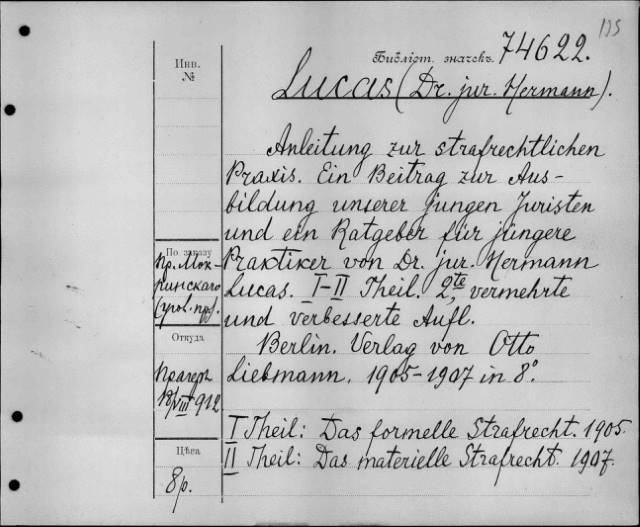 135
Инв.
№
Библіот. значекъ 74622.
Lucas (Dr. jur. Hermann).
Anleitung zur strafrechtlichen
Praxis. Ein Beitrag zur Aus-
bildung unserer jungen Juristen
und ein Ratgeber für jüngere
Praktiker von Dr. jur. Hermann
Lucas. I-II Theil. 2te, vermehrte
und verbesserte Aufl.
Berlin. Verlag von Otto
Liebmann. 1905-1907 in 8°.
I Theil: Das formelle Strafrecht. 1905.
II Theil: Das materielle Strafrecht. 1907.
По заказу
Пр. Мок-
ринскаго
(угол. пр.).
Откуда
Прагеръ
VIII 912
Цѣна
8 р.